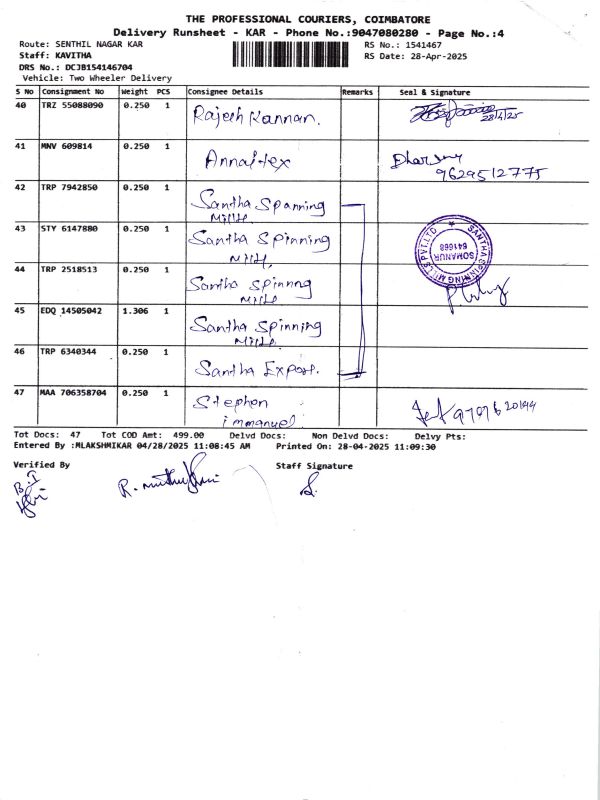 THE PROFESSIONAL COURIERS, COIMBATORE
Delivery Runsheet - KAR - Phone No.:9047080280 - Page No.:4
Route: SENTHIL NAGAR KAR RS No.: 1541467
Staff: KAVITHA RS Date: 28-Apr-2025
DRS No.: DCJB154146704
Vehicle: Two Wheeler Delivery
S No Consignment No Weight PCS Consignee Details Remarks Seal & Signature
40 TRZ 55088090 0.250 1 Rajesh Kannan. 28/4/25
41 MNV 609814 0.250 1 Annai tex
9629512775
42 TRP 7942850 0.250 1 Santha Spanning
Mills.
43 STY 6147880 0.250 1 Santha Spinning
Mills.
SANTHA SPINNING MILLS PVT LTD
SOMANUR
641668
44 TRP 2518513 0.250 1 Santha Spinning
Mills
45 EDQ 14505042 1.306 1 Santha Spinning
Mills.
46 TRP 6340344 0.250 1 Santha Export.
47 MAA 706358704 0.250 1 Stephen
immanuel
Tot Docs: 47 Tot COD Amt: 499.00 Delvd Docs: Non Delvd Docs: Delvy Pts:
Entered By :MLAKSHMIKAR 04/28/2025 11:08:45 AM Printed On: 28-04-2025 11:09:30
Verified By Staff Signature